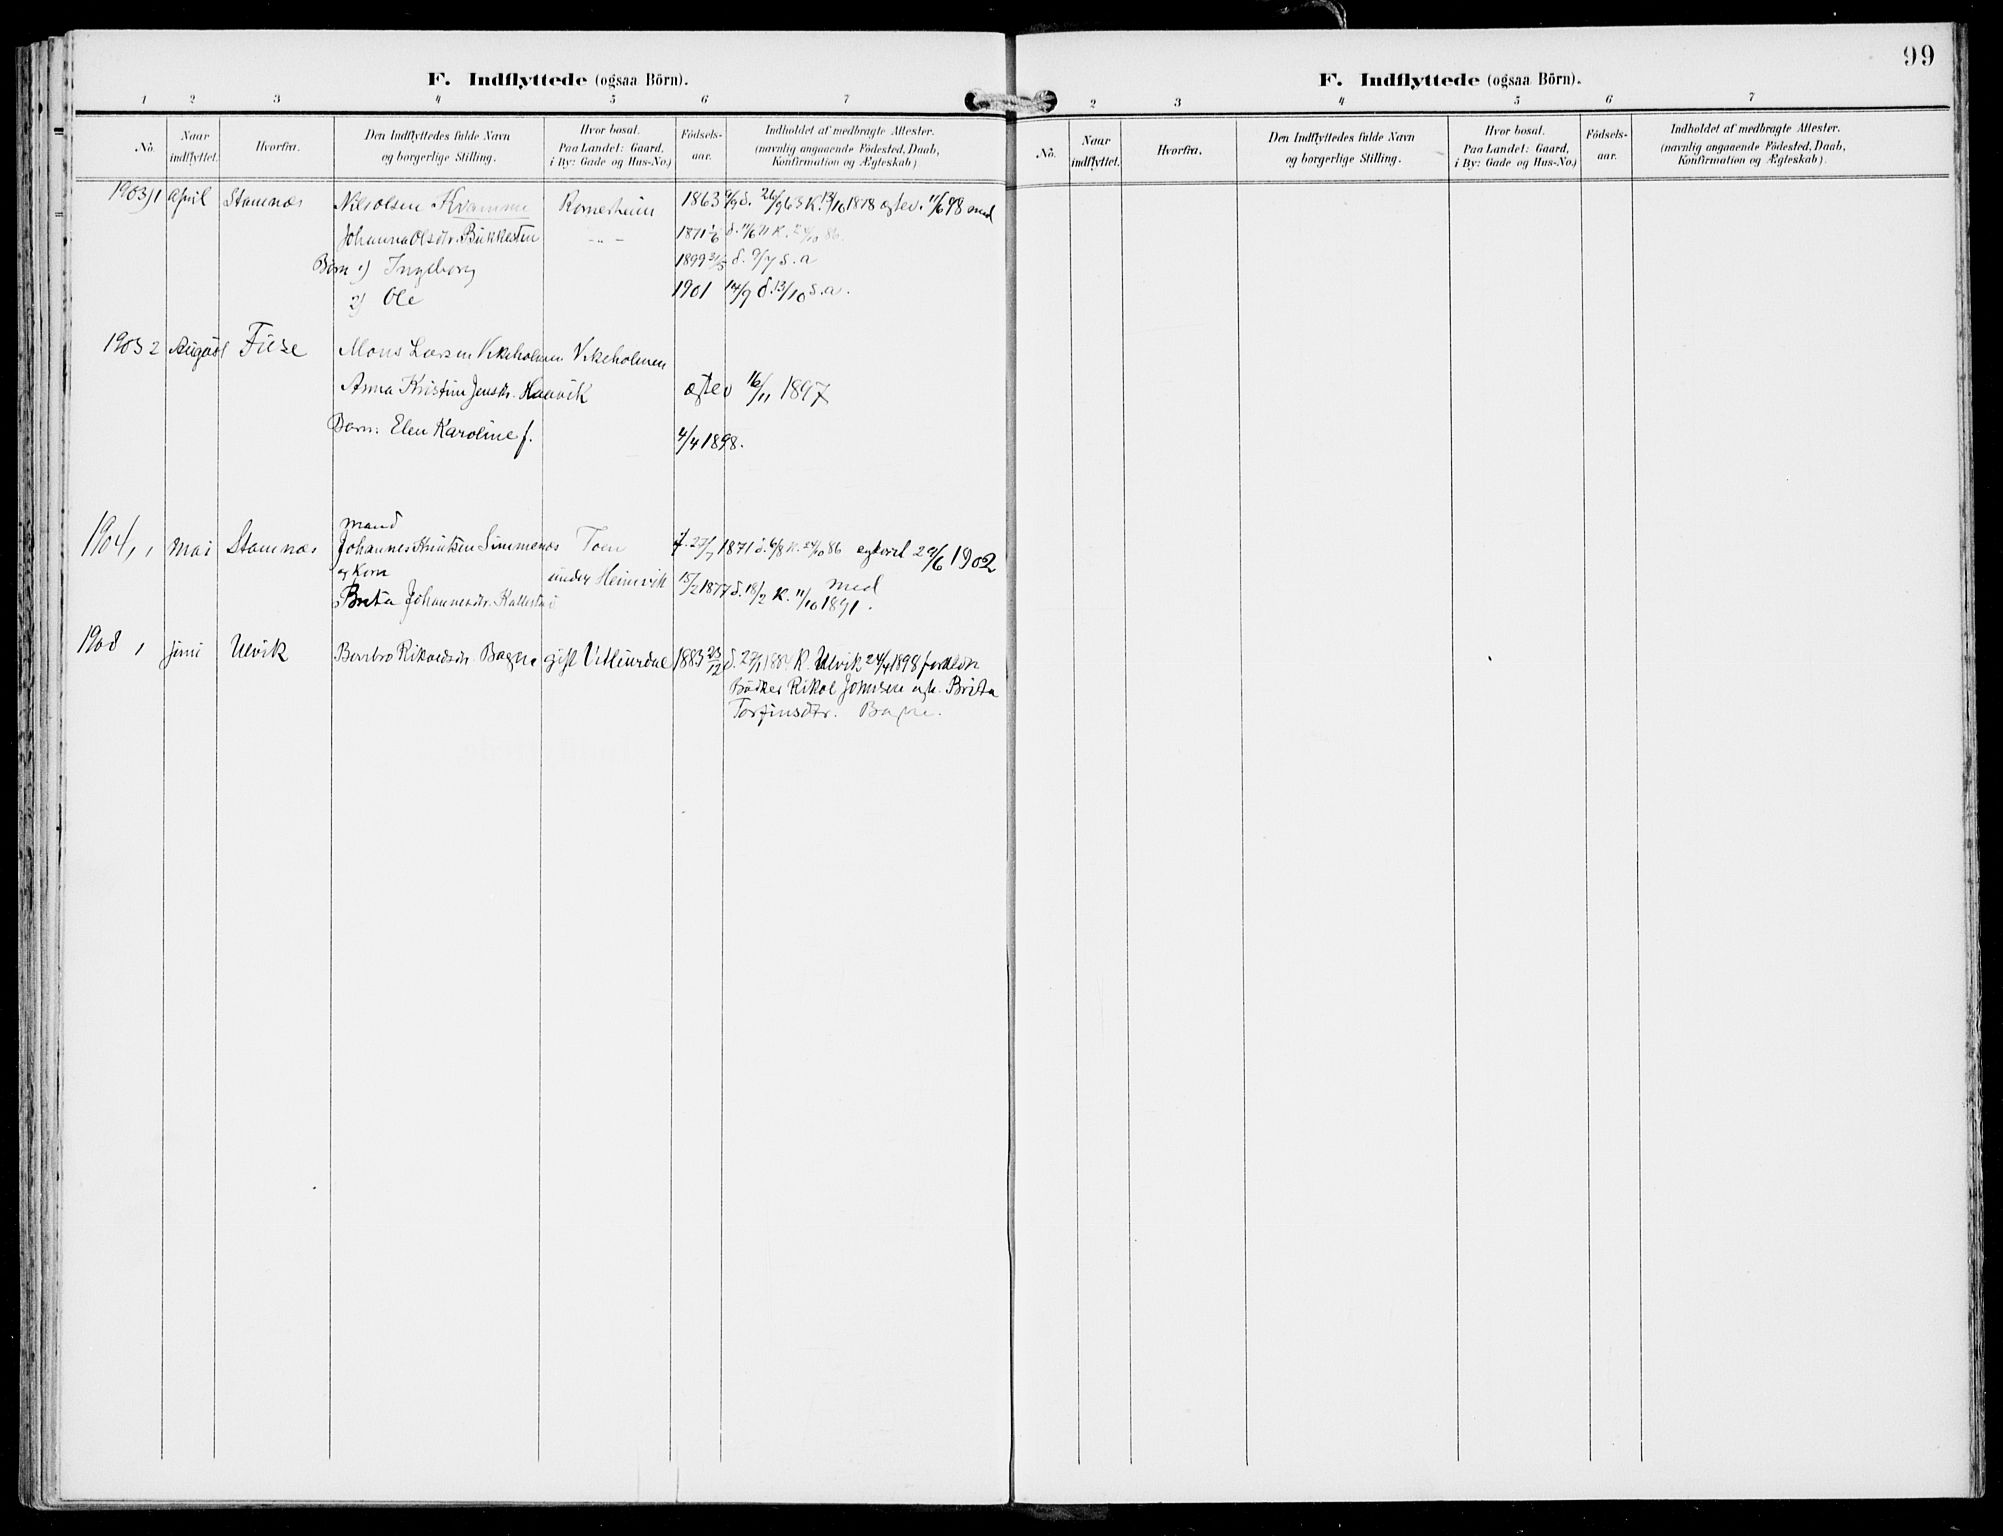 F. Indflyttede (ogsaa Börn).
1 2 3 4 5 6 7
No. Naar indflyttet. Hvorfra. Den Indflyttedes fulde Navn og borgerlige Stilling. Hvor bosat. Paa Landet: Gaard, i By: Gade og Hus-No.) Födsels-aar. Indholdet af medbragte Attester. (navnlig angaaende Födested, Daab, Konfirmation og Ægteskab)
1903/1 April Stamnæs Nils Olsen Kvamme 1863 9/9 d. 26/9 63 K. 13/10 1878 ægtev. 11/6 98 med
Johanna Olsdtr. - " - 1871 1/6 d. 11/6 71 K.
Børn 1) Ingeborg 1899 d. 9/7 s. a
2) Ole 1901 14/9 d. 13/10 s. a.
1903 2 August Fuse Mons Larsen Vikeholmen Vikeholmen
Anna Kristine Jensdtr. Haavik ægtev 16/11 1897
Barn: Elen Karoline f. 4/4 1898.
mand
1904, 1 Mai Stamnæs Johannes Knutsen Simmenæs Toen f. 23/7 1871 d. 6/8 K. 24/10 86 29/6 1902
og Kone under Heimvik med
Brita Johannesdtr. Kallestad 15/2 1877 d. 18/2 K. 11/10 1891.
1908, 1 Juni Ulvik Rikoldsdr. Bagne gift 1883 23/12 d. K. Ulvik 24/4 1898 foreldre
Bødker Rikol Johnsen og k. Brita
Torfinsdtr. Bagne.
99
F. Indflyttede (ogsaa Börn).
2 3 4 5 6 7
No. Naar indflyttet. Hvorfra. Den Indflyttedes fulde Navn og borgerlige Stilling. Hvor bosat. Paa Landet: Gaard, i By: Gade og Hus-No.) Födsels-aar. Indholdet af medbragte Attester. (navnlig angaaende Födested, Daab, Konfirmation og Ægteskab).